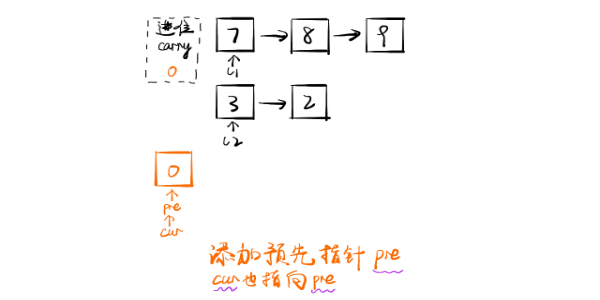 进位
carry
0
7 → 8 → 9
↑
L1
3 → 2
↑
L2
0
↑
pre
↑
cur
添加预先指针 pre
cur也指向pre